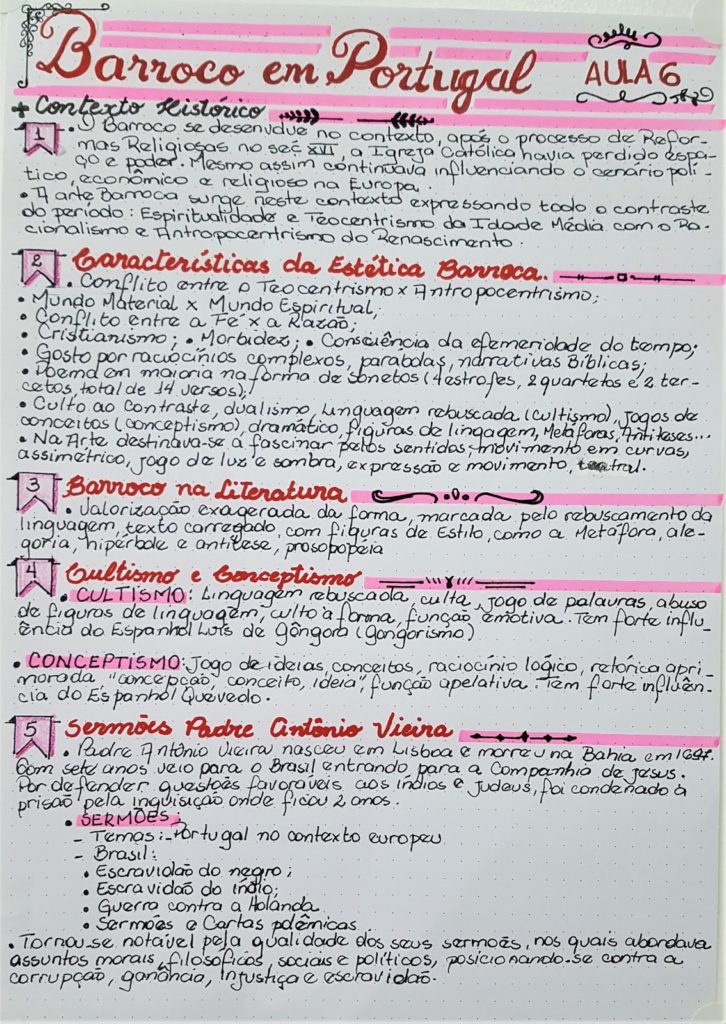 Barroco em Portugal AULA 6
+ Contexto Histórico
1 • O Barroco se desenvolve no contexto, após o processo de Refor-
mas Religiosas no séc XVI, a Igreja Católica havia perdido espa-
ço e poder. Mesmo assim continuava influenciando o cenário polí-
tico, econômico e religioso na Europa.
• A arte Barroca surge neste contexto expressando todo o contraste
do período: Espiritualidade e Teocentrismo da Idade Média com o Ra-
cionalismo e Antropocentrismo do Renascimento.
2 Características da Estética Barroca.
• Conflito entre o Teocentrismo x Antropocentrismo;
• Mundo Material x Mundo Espiritual;
• Conflito entre a Fé x a Razão;
• Cristianismo; • Morbidez; • Consciência da efemeridade do tempo;
• Gosto por raciocínios complexos, parábolas, narrativas Bíblicas;
• Poema em maioria na forma de sonetos (4 estrofes, 2 quartetos e 2 ter-
cetos, total de 14 versos);
• Culto ao contraste, dualismo, Linguagem rebuscada (cultismo), jogos de
conceitos (conceptismo), dramático, figuras de lingagem, Metáforas, Antíteses...
• Na Arte destinava-se a fascinar pelos sentidos; movimento em curvas,
assimétrico, jogo de luz e sombra, expressão e movimento, teatral.
3 Barroco na Literatura
• Valorização exagerada da forma, marcada pelo rebuscamento da
linguagem, texto carregado, com figuras de Estilo, como a Metáfora, ale-
goria, hipérbole e antítese, prosopopeia
4 Cultismo e Conceptismo
• CULTISMO: Linguagem rebuscada, culta, jogo de palavras, abuso
de figuras de linguagem, culto a forma, função emotiva. Tem forte influ-
ência do Espanhol Luís de Gôngora (gongorismo)
• CONCEPTISMO: Jogo de ideias, conceitos, raciocínio lógico, retórica apri-
morada "concepção, conceito, ideia", função apelativa. Tem forte influên-
cia do Espanhol Quevedo.
5 Sermões Padre Antônio Vieira
• Padre Antônio Vieira nasceu em Lisboa e morreu na Bahia em 1697.
Com sete anos veio para o Brasil entrando para a Companhia de Jesus.
Por defender questões favoráveis aos índios e judeus, foi condenado à
prisão pela inquisição onde ficou 2 anos.
• SERMÕES:
- Temas: - Portugal no contexto europeu
- Brasil:
• Escravidão do negro;
• Escravidão do índio;
• Guerra contra a Holanda
• Sermões e Cartas polêmicas
• Tornou-se notável pela qualidade dos seus sermões, nos quais abordava
assuntos morais, filosóficos, sociais e políticos, posicionando-se contra a
corrupção, ganância, injustiça e escravidão.